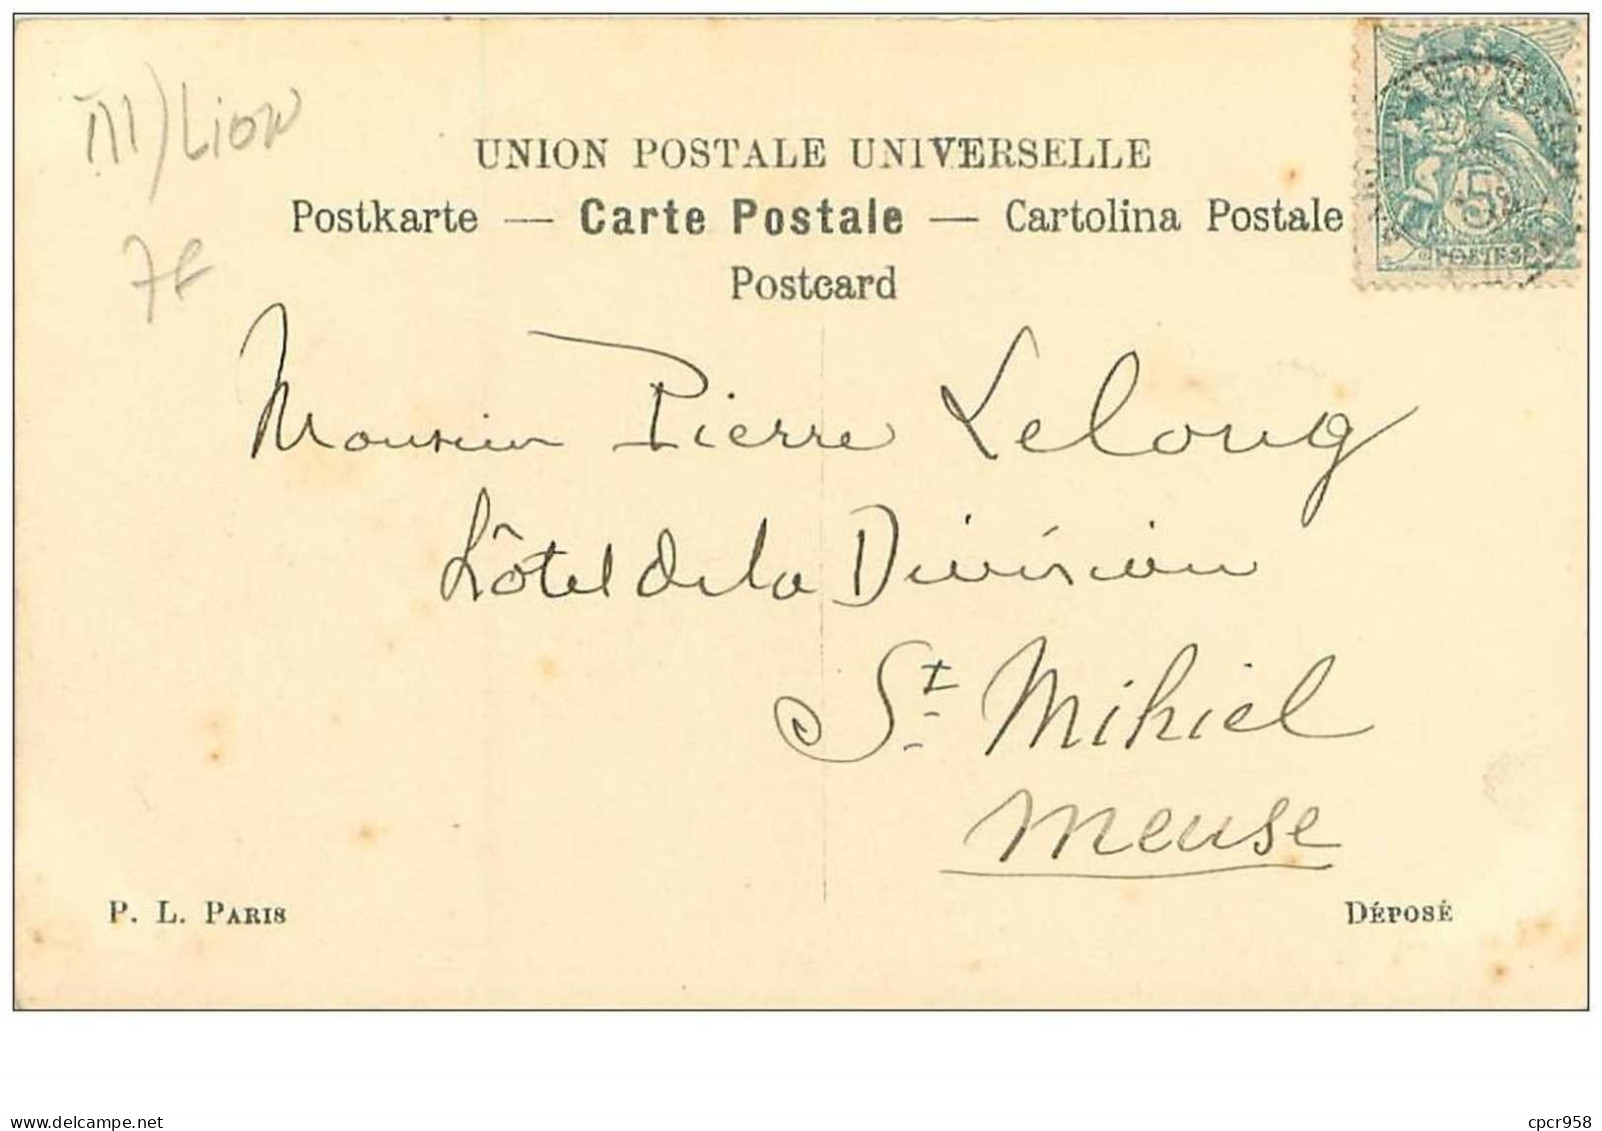 III) Lion
7F
UNION POSTALE UNIVERSELLE
Postkarte — Carte Postale — Cartolina Postale
Postcard
5
POSTES
Monsieur Pierre Lelong
Hôtel de la Division
St. Mihiel
Meuse
P. L. PARIS
DÉPOSÉ
delcampe.net
cpcr958